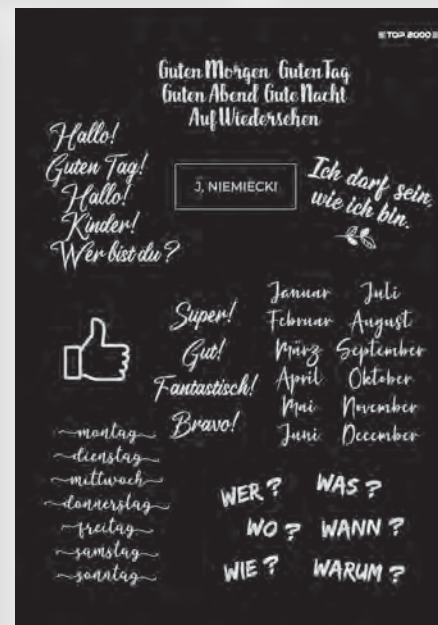 TOP 2000
Guten Morgen Guten Tag
Guten Abend Gute Nacht
Auf Wiedersehen
Hallo!
Guten Tag!
Hallo!
Kinder!
Wer bist du?
J, NIEMIECKI
Ich darf sein,
wie ich bin.
Super!
Gut!
Fantastisch!
Bravo!
Januar Juli
Februar August
März September
April Oktober
Mai November
Juni December
montag
dienstag
mittwoch
donnerstag
freitag
samstag
sonntag
WER ? WAS ?
WO ? WANN ?
WIE ? WARUM ?